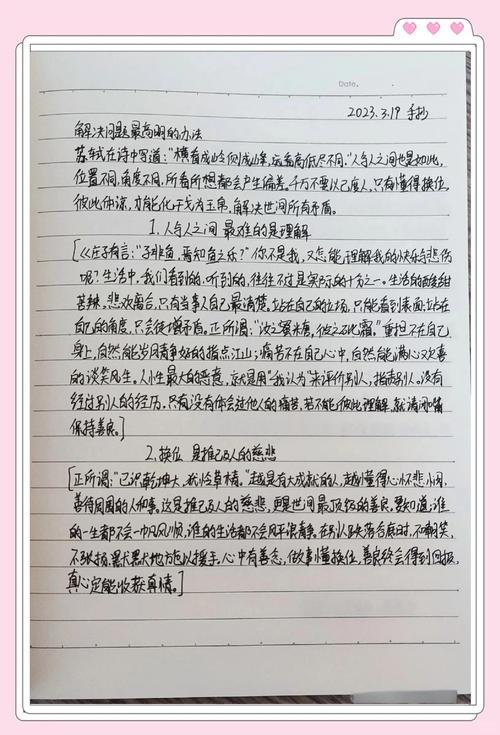 Date.
2023.3.19 手抄
解决问题最高明的办法
苏轼在诗中写道：“横看成岭侧成峰，远近高低尽不同。”人与人之间也是如此，
位置不同，角度不同，所看所想都会产生偏差。千万不要以己度人，只有懂得换位，
彼此体谅，才能化干戈为玉帛，解决世间所有矛盾。
1. 人与人之间 最难的是理解
[《庄子有言：“子非鱼，焉知鱼之乐？”你不是我，又怎能，理解我的快乐与悲伤
呢？生活中，我们看到的、听到的，往往不过是实际的十分之一。生活的酸甜
苦辣，悲欢离合，只有当事人自己最清楚。站在自己的立场，只能看到表面；站在
自己的角度，只会徒增矛盾。正所谓：“汝之蜜糖，彼之砒霜。”重担不在自己
身上，自然能岁月静好的指点江山；痛苦不在自己心中，自然能满心欢喜
的谈笑风生。人性最大的恶意，就是用“我认为”来评价别人、指责别人。没有
经过别人的经历，只有没有体会过他人的痛苦，若不能彼此理解，就请闭嘴
保持善良。]
2. 换位 是推己及人的慈悲
[正所谓：“已识乾坤大，犹怜草木情。”越是有大成就的人，越懂得心怀悲悯，
善待周围的人和事，这是推己及人的慈悲，更是世间最顶级的善良。要知道：谁
的一生都不会一帆风顺，谁的生活都不会风平浪静。在别人失落落魄时，不嘲笑，
不张扬，默默地施以援手。心中有善念，做事懂换位，善良终会得到回报，
真心定能收获真情。]